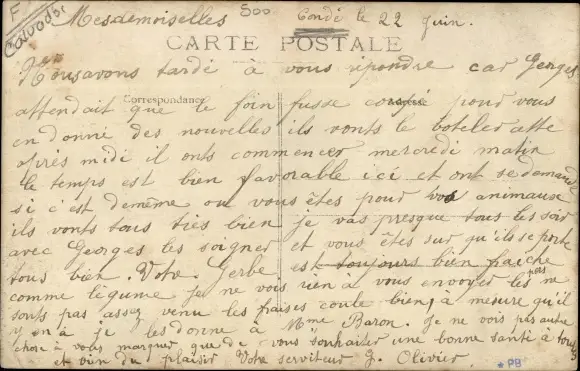 F
Calvados
500
Mesdemoiselles Condé le 22 Juin.
CARTE POSTALE
Correspondance
Nous avons tardé à vous répondre car Georges
attendait que le foin fusse coupé pour vous
en donné des nouvelles ils vonts le boteler atte
après midi il onts commencer mercredi matin
le temps est bien favorable ici et ont se demande
si c'est demême ou vous êtes pour vos animaux
ils vonts tous très bien je vas presque tous les soir
avec Georges les soigner et vous êtes sur qu'ils se porte
tous bien. Votre Gerbe est toujours bien fraiche
comme légume je ne vois rien à vous envoyer les pois ne
sonts pas assez venu les fraises coule bien, à mesure qu'il
y en à je les donne à Mme Baron. Je ne vois pas autre
chose à vous marquer que de vous souhaiter une bonne santé à tous
et bien du plaisir Votre serviteur J. Olivier
*PB